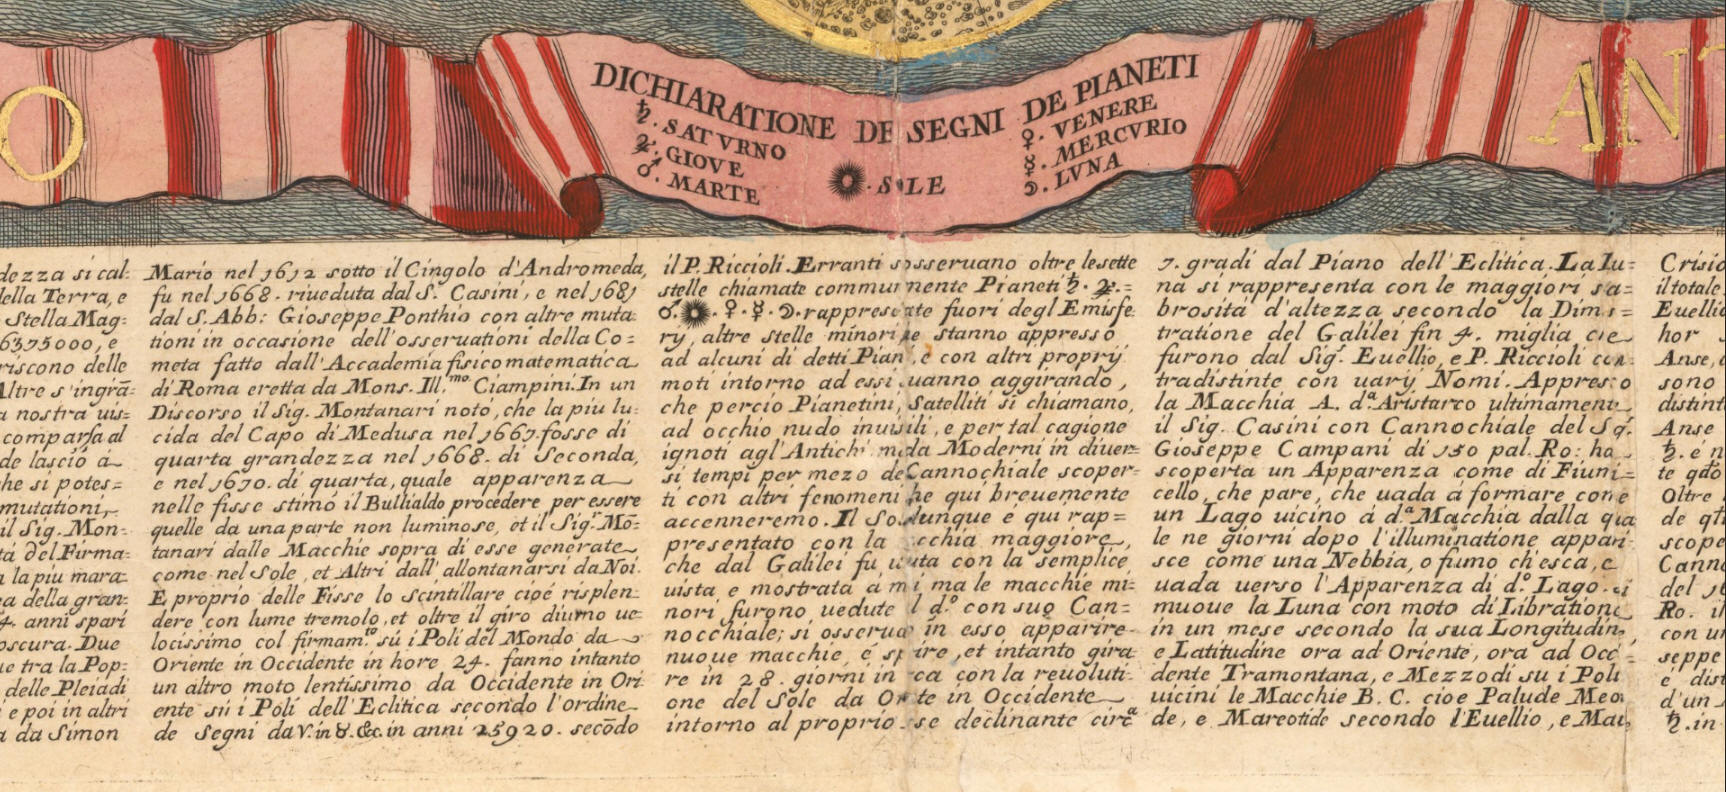 O
DICHIARATIONE DE SEGNI DE PIANETI
♄. SATVRNO
♃. GIOVE
♂. MARTE
☀. SOLE
♀. VENERE
☿. MERCVRIO
☽. LVNA
AN
dezza si cal:
della Terra, e
Stella Mag:
6375000, e
riscono delle
Altre s'ingrā:
a nostra uis:
comparsa al
de lasciò à
he si potes=
mutationi,
il Sig. Mon:
tá del Firma:
la piu mara:
ea della gran:
4. anni spari
oscura. Due
ue tra la Pop:
delle Pleiadi
e poi in altri
a da Simon
Mario nel 1612 sotto il Cingolo d'Andromeda,
fu nel 1668. riueduta dal S. Casini, e nel 1681
dal S. Abb: Gioseppe Ponthio con altre muta:
tioni in occasione dell'osseruationi della Co=
meta fatto dall'Accademia fisicomatematica
di Roma eretta da Mons. Ill.mo Ciampini. In un
Discorso il Sig. Montanari noto, che la piu lu:
cida del Capo di Medusa nel 1667. fosse di
quarta grandezza nel 1668. di Seconda,
e nel 1670. di quarta, quale apparenza
nelle fisse stimó il Bullialdo procedere per essere
quelle da una parte non luminose, et il Sigr. Mō:
tanari dalle Macchie sopra di esse generate
come nel Sole, et Altri dall'allontanarsi da Noi.
E proprio delle Fisse lo scintillare cioé risplen:
dere con lume tremolo, et oltre il giro diurno ue:
locissimo col firmam.to sú i Poli del Mondo da
Oriente in Occidente in hore 24. fanno intanto
un altro moto lentissimo da Occidente in Ori:
ente sú i Poli dell'Eclitica secondo l'ordine
de Segni da ♈. in ♉. &c. in anni 25920. secōdo
il P. Riccioli. Erranti s'osseruano oltre le sette
stelle chiamate communemente Pianeti ♄. ♃.=
♂. ☀. ♀. ☿. ☽. rappresentate fuori degl'Emisfe:
ry, altre stelle minori che stanno appresso
ad alcuni di detti Pianeti, e con altri proprij
moti intorno ad essi uanno aggirando,
che percio Pianetini, Satelliti si chiamano,
ad occhio nudo inuisibili, e per tal cagione
ignoti agl'Antichi, ma da Moderni in diuer=
si tempi per mezo del Cannochiale scoper=
ti con altri fenomeni che qui breuemente
accenneremo. Il Sole dunque é qui rap=
presentato con la Macchia maggiore,
che dal Galilei fú ueduta con la semplice
uista e mostrata á molti ma le macchie mi=
nori furono uedute dal d.º con suo Can=
nocchiale; si osserua in esso apparire
nuoue macchie, é sparire, et intanto gira:
re in 28. giorni in circa con la reuoluti:
one del Sole da Oriente in Occidente
intorno al proprio Asse declinante circa
7. gradi dal Piano dell'Eclitica. La lu=
na si rappresenta con le maggiori sca=
brositá d'altezza secondo la Dimos=
tratione del Galilei fin 4. miglia che
furono dal Sig. Euellio, e P. Riccioli con=
tradistinte con uarij Nomi. Appresso
la Macchia A. d.ª Aristarco ultimamente
il Sig. Casini con Cannochiale del Sig.
Gioseppe Campani di 150 pal. Ro: ha
scoperta un Apparenza come di Fiumi=
cello, che pare, che uada á formare come
un Lago uicino á d.ª Macchia dalla qua
le ne giorni dopo l'illuminatione appari:
sce come una Nebbia, o fumo ch'esca, e
uada uerso l'Apparenza di d.º Lago. si
muoue la Luna con moto di Libratione
in un mese secondo la sua Longitudine,
e Latitudine ora ad Oriente, ora ad Occi=
dente Tramontana, e Mezzodi su i Poli
uicini le Macchie B. C. cioe Palude Meo
de, e Mareotide secondo l'Euellio, e Mar
Crisio
il totale
Euellio
hor
Anse,
sono
distint
Anse
♄. é n
te qdo
Oltre
de qt
scope
Canno
del 16
Ro. il
con un
seppe
é dist
d'un
♄. in